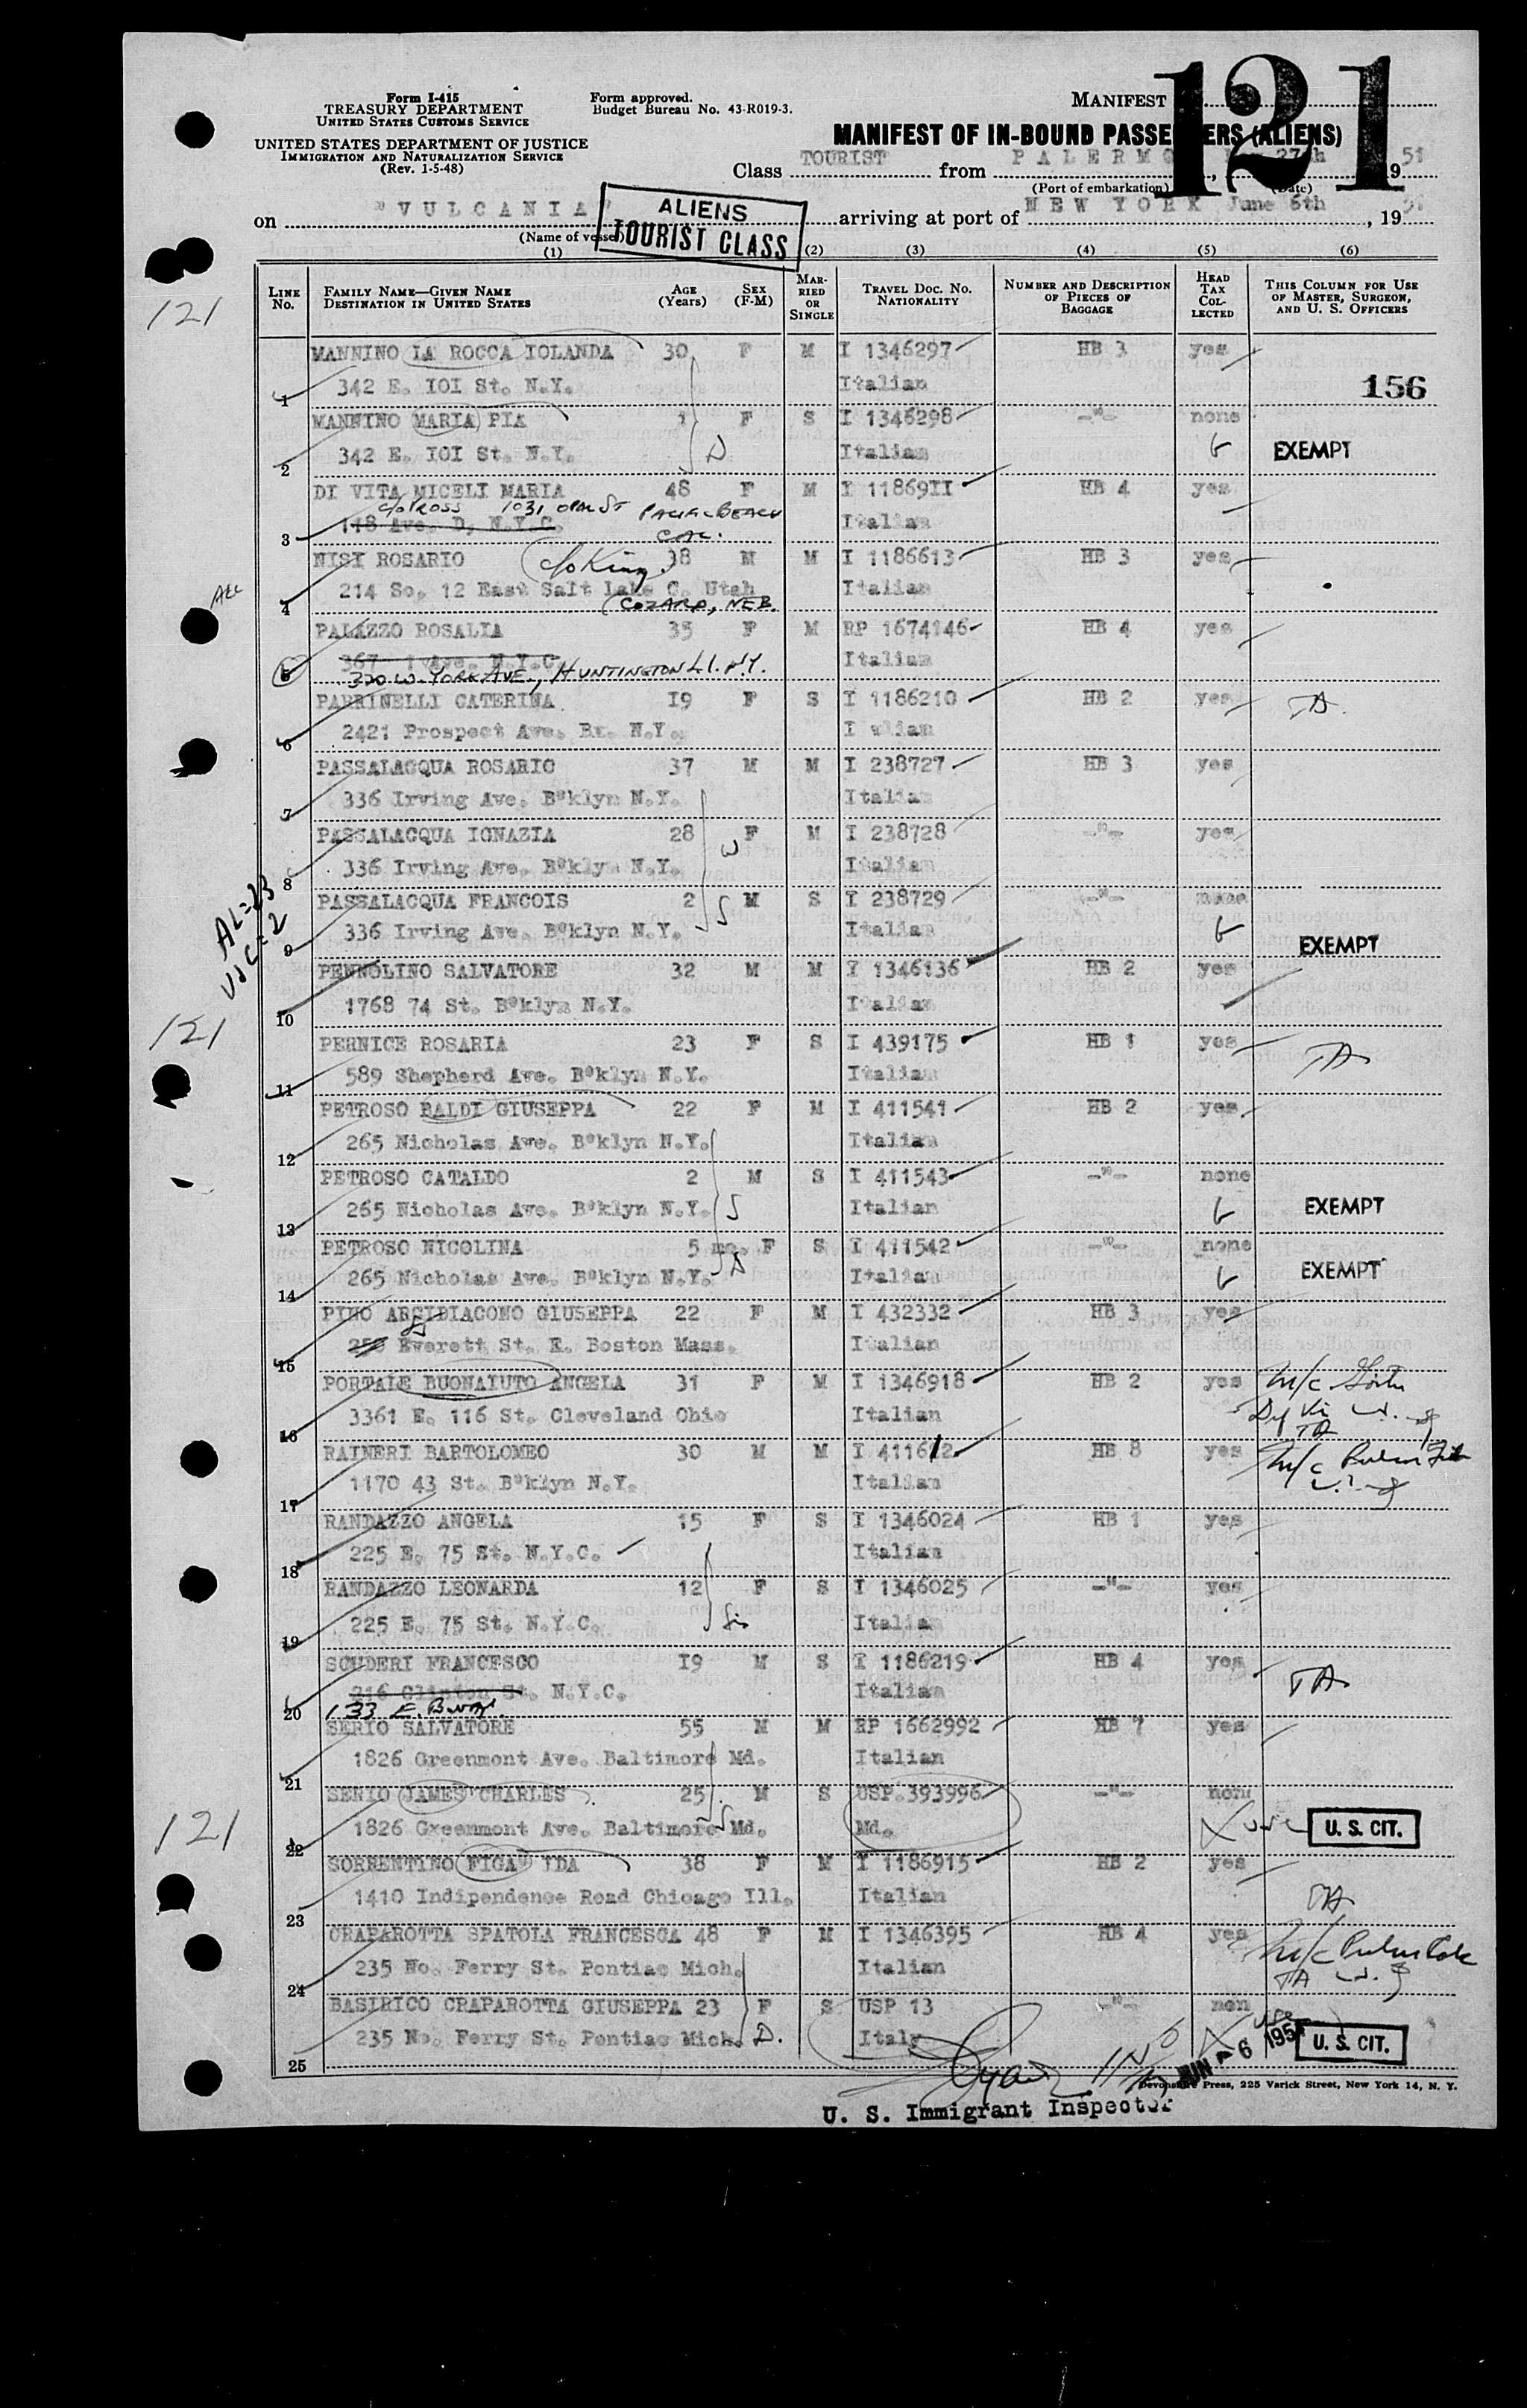 Form I-415
TREASURY DEPARTMENT
UNITED STATES CUSTOMS SERVICE
UNITED STATES DEPARTMENT OF JUSTICE
IMMIGRATION AND NATURALIZATION SERVICE
(Rev. 1-5-48)
Form approved.
Budget Bureau No. 43-R019-3.
MANIFEST
121
MANIFEST OF IN-BOUND PASSENGERS (ALIENS)
Class TOURIST from PALERMO, 27th 1951
(Port of embarkation) (Date)
on "VULCANIA" arriving at port of NEW YORK June 6th, 1951
(Name of vessel)
ALIENS
TOURIST CLASS
(1) (2) (3) (4) (5) (6)
LINE No. FAMILY NAME—GIVEN NAME DESTINATION IN UNITED STATES AGE (Years) SEX (F-M) MARRIED OR SINGLE TRAVEL DOC. NO. NATIONALITY NUMBER AND DESCRIPTION OF PIECES OF BAGGAGE HEAD TAX COLLECTED THIS COLUMN FOR USE OF MASTER, SURGEON, AND U. S. OFFICERS
121
MANNINO LA ROCCA IOLANDA 30 F M I 1346297 HB 3 yes
1 342 E. IOI St. N.Y. Italian 156
MANNINO MARIA PIA 1 F S I 1346298 -"- none
2 342 E. IOI St. N.Y. D Italian G EXEMPT
DI VITA MICELI MARIA 48 F M I 11869II HB 4 yes
c/o ROSS 1031 OPAL ST PACIFIC BEACH CAL.
3 118 Ave. D, N.Y.C. Italian
NISI ROSARIO c/o King 38 M M I 1186613 HB 3 yes
4 214 So. 12 East Salt Lake C. Utah Italian
COZARD, NEB.
PALAZZO ROSALIA 35 F M RP 1674146 HB 4 yes
5 367 1 Ave. N.Y.C. Italian
320 W. YORK AVE., HUNTINGTON L.I. N.Y.
PARRINELLI CATERINA I9 F S I 1186210 HB 2 yes TA
6 2421 Prospect Ave. Bx. N.Y. Italian
PASSALACQUA ROSARIO 37 M M I 238727 HB 3 yes
7 336 Irving Ave. B"klyn N.Y. Italian
PASSALACQUA IGNAZIA 28 W F M I 238728 -"- yes
8 336 Irving Ave. B"klyn N.Y. Italian
AL=23
USC=2
PASSALACQUA FRANCOIS 2 S M S I 238729 -"- none
9 336 Irving Ave. B"klyn N.Y. Italian G EXEMPT
PENNOLINO SALVATORE 32 M M I 1346136 HB 2 yes
10 1768 74 St. B"klyn N.Y. Italian
121
PERNICE ROSARIA 23 F S I 439175 HB 1 yes TA
11 589 Shepherd Ave. B"klyn N.Y. Italian
PETROSO BALDI GIUSEPPA 22 F M I 411541 HB 2 yes
12 265 Nicholas Ave. B"klyn N.Y. Italian
PETROSO CATALDO 2 M S I 411543 -"- none
13 265 Nicholas Ave. B"klyn N.Y. S Italian G EXEMPT
PETROSO NICOLINA 5 mo. F S I 411542 -"- none
14 265 Nicholas Ave. B"klyn N.Y. D Italian G EXEMPT
PINO ARCIDIACONO GIUSEPPA 22 F M I 432332 HB 3 yes
15 Everett St. E. Boston Mass. Italian
PORTALE BUONAIUTO ANGELA 31 F M I 1346918 HB 2 yes M/C
16 3361 E. 116 St. Cleveland Ohio Italian TA
RAINERI BARTOLOMEO 30 M M I 411612 HB 8 yes M/C
17 1170 43 St. B"klyn N.Y. Italian
RANDAZZO ANGELA 15 F S I 1346024 HB 1 yes
18 225 E. 75 St. N.Y.C. Italian
RANDAZZO LEONARDA 12 F S I 1346025 -"- yes
19 225 E. 75 St. N.Y.C. Sis Italian
SCUDERI FRANCESCO I9 M S I 1186219 HB 4 yes TA
20 216 Clinton St. N.Y.C. Italian
133 E. Bway.
SERIO SALVATORE 55 M M RP 1662992 HB 7 yes
21 1826 Greenmont Ave. Baltimore Md. Italian
SERIO JAMES CHARLES 25 M S USP 393996 -"- none
22 1826 Greenmont Ave. Baltimore Md. S Md. U. S. CIT.
121
SORRENTINO FIGA" IDA 38 F M I 1186915 HB 2 yes
23 1410 Indipendence Road Chicago Ill. Italian TA
CRAPAROTTA SPATOLA FRANCESCA 48 F M I 1346395 HB 4 yes M/C
24 235 No. Ferry St. Pontiac Mich. Italian TA
BASIRICO CRAPAROTTA GIUSEPPA 23 F S USP 13 -"- non
25 235 No. Ferry St. Pontiac Mich. D. Italy JUN 6 1951 U. S. CIT.
Devonshire Press, 225 Varick Street, New York 14, N. Y.
U. S. Immigrant Inspector